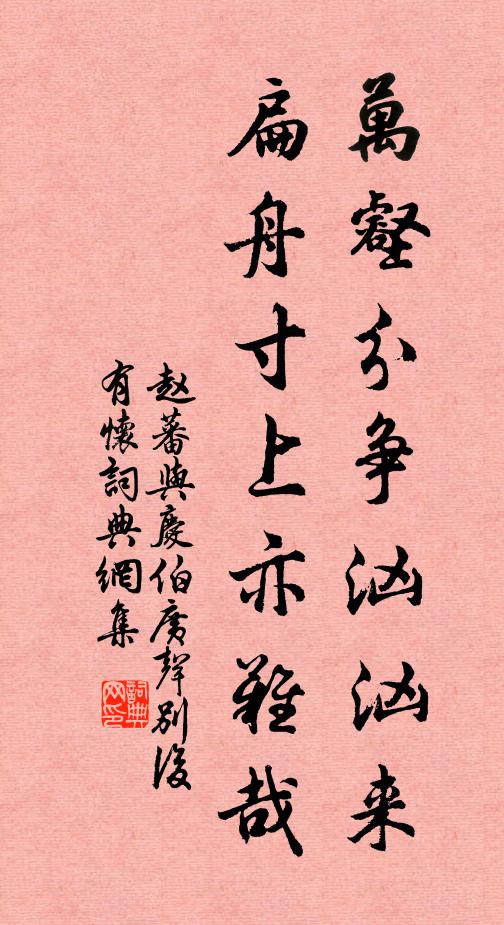 萬壑分争汹汹来
扁舟寸上亦難哉
赵蕃與慶伯廣聲别後
有懷詞典網集
詞典网印